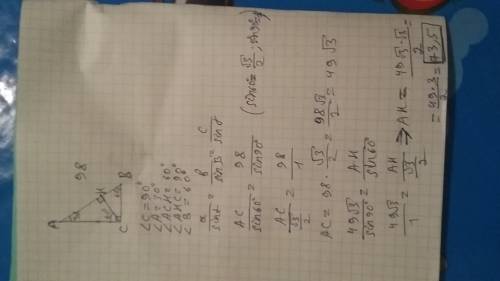 A 98 H B C
∠C = 90°
∠A = 30°
∠ACH = 60°
∠AHC = 90°
∠B = 60°
a/sinα = b/sinβ = c/sinγ
AC/sin60° = 98/sin90° (sin60° = √3/2; sin90°=1)
AC/(√3/2) = 98/1
AC = 98 · √3/2 = 98√3/2 = 49√3
49√3/sin90° = AH/sin60°
49√3/1 = AH/(√3/2) ⇒ AH = 49√3·√3/2 =
= 49·3/2 = 73,5